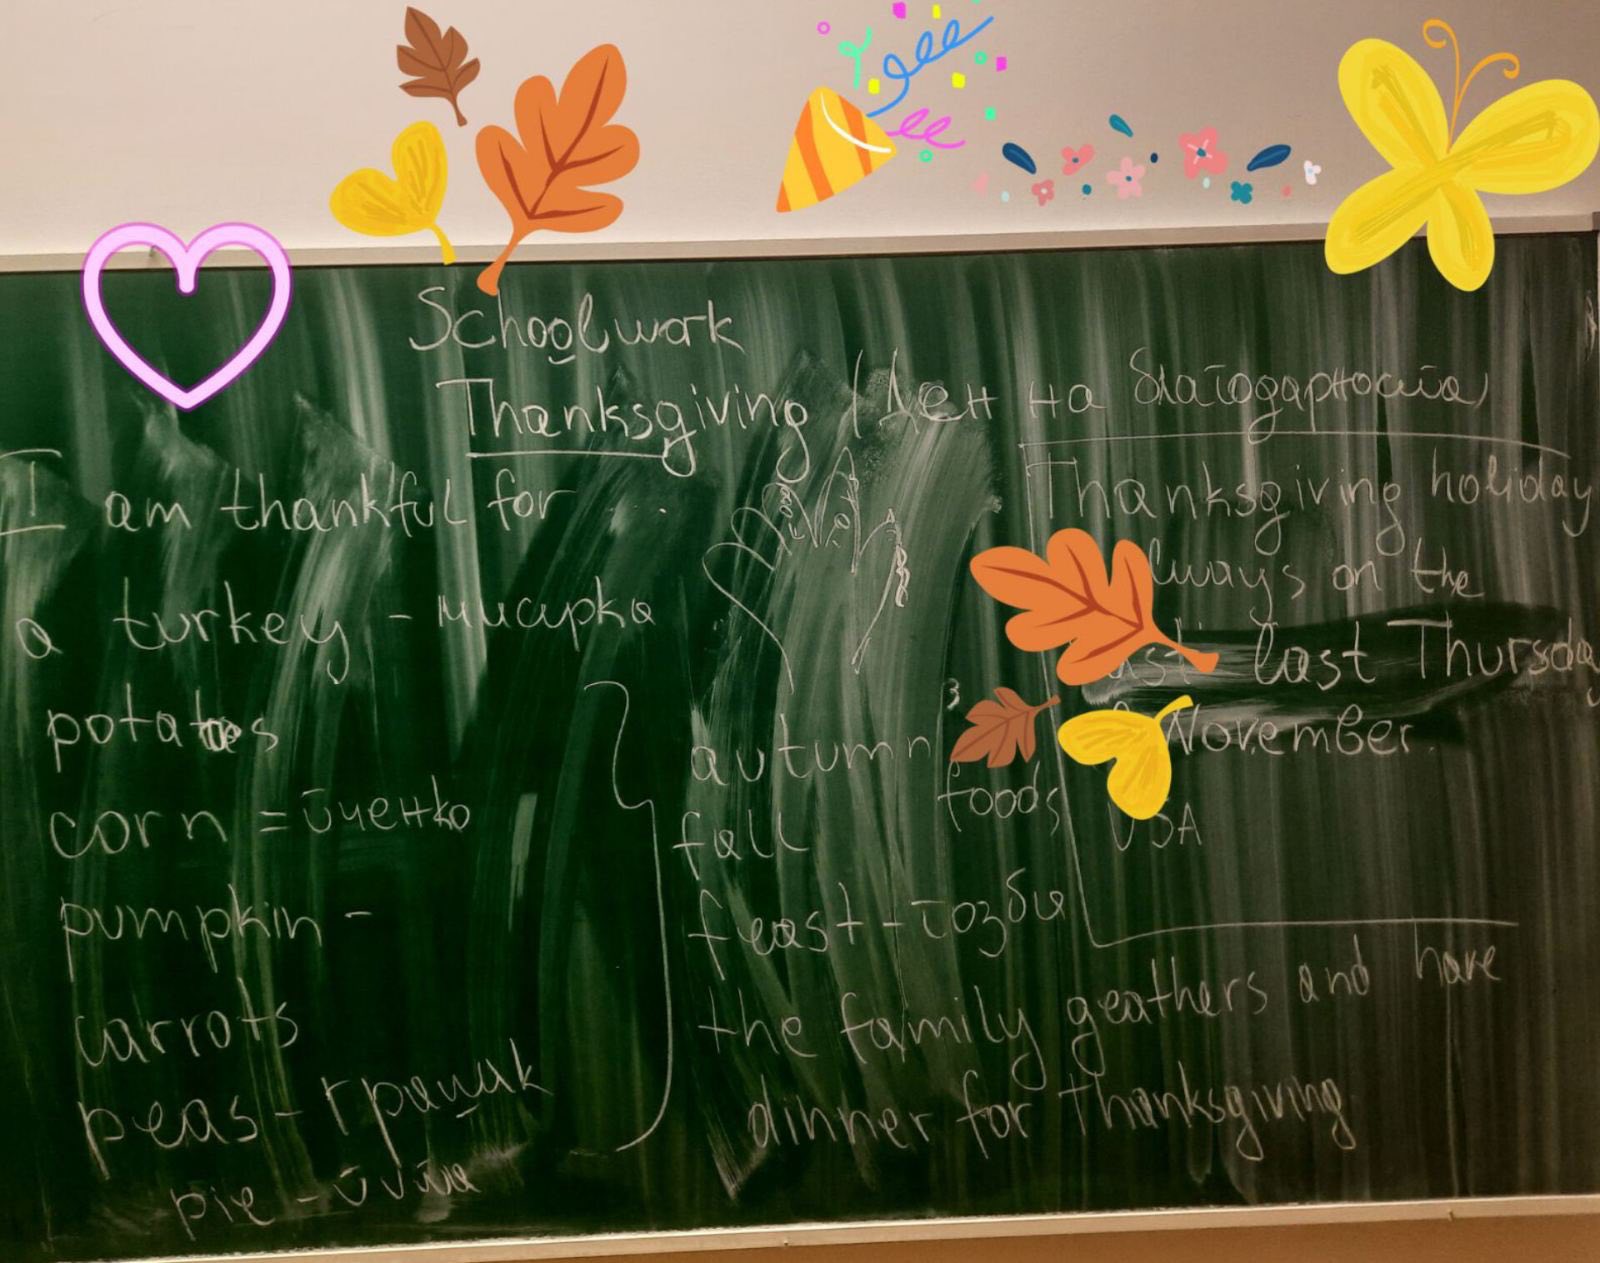 Schoolwork
Thanksgiving (Ден на благодарността)
I am thankful for ...
a turkey - мисирка
potatoes
corn = пченко
pumpkin -
carrots
peas - грашак
pie - пита
autumn
fall
foods
feast - гозби
the family geathers and have
dinner for Thanksgiving
Thanksgiving holiday
lways on the
last Thursday
November.
USA